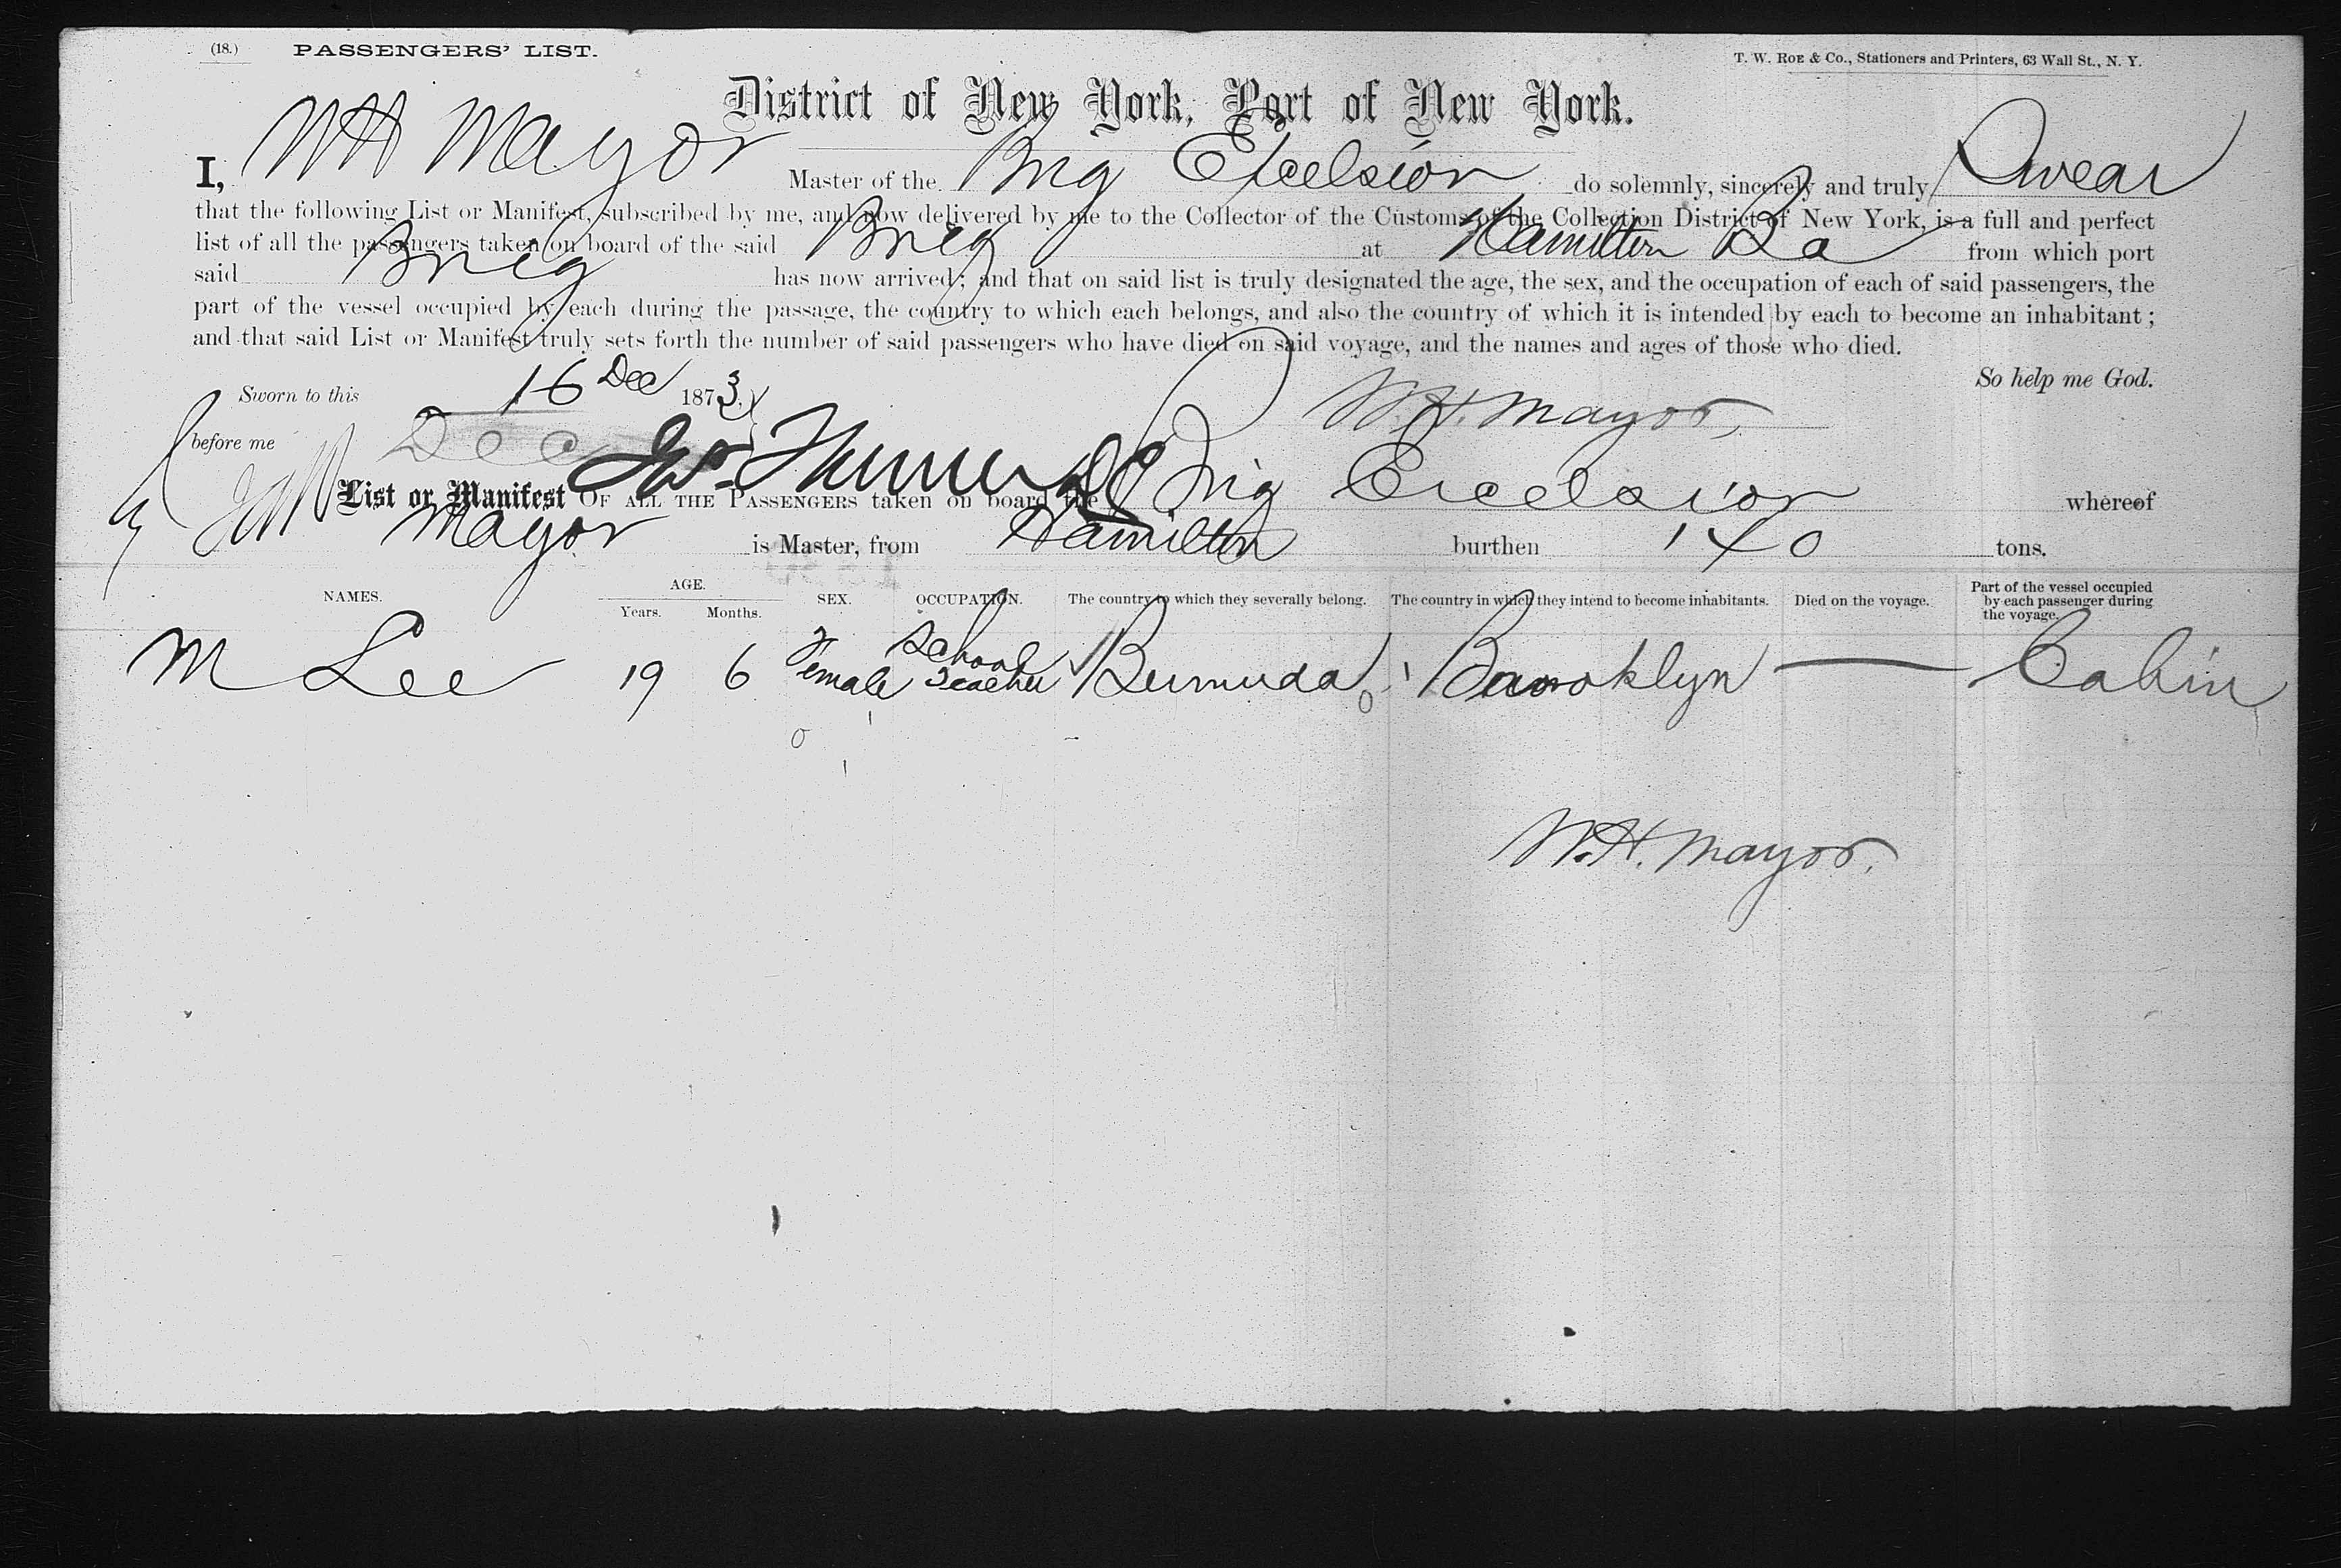 (18.) PASSENGERS' LIST.
T. W. ROE & Co., Stationers and Printers, 63 Wall St., N. Y.
District of New York, Port of New York.
I, W H Mayor Master of the Brig Excelsior do solemnly, sincerely and truly Swear
that the following List or Manifest, subscribed by me, and now delivered by me to the Collector of the Customs of the Collection District of New York, is a full and perfect
list of all the passengers taken on board of the said Brig at Hamilton Ba from which port
said Brig has now arrived; and that on said list is truly designated the age, the sex, and the occupation of each of said passengers, the
part of the vessel occupied by each during the passage, the country to which each belongs, and also the country of which it is intended by each to become an inhabitant;
and that said List or Manifest truly sets forth the number of said passengers who have died on said voyage, and the names and ages of those who died.
So help me God.
Sworn to this 16 Dec 1873.
W. H. Mayor,
before me Dec
List or Manifest OF ALL THE PASSENGERS taken on board the Brig Excelsior whereof
Mayor is Master, from Hamilton burthen 140 tons.
NAMES. AGE. Years. Months. SEX. OCCUPATION. The country to which they severally belong. The country in which they intend to become inhabitants. Died on the voyage. Part of the vessel occupied by each passenger during the voyage.
M Lee 19 6 Female School Teacher Bermuda Brooklyn — Cabin
W. H. Mayor.